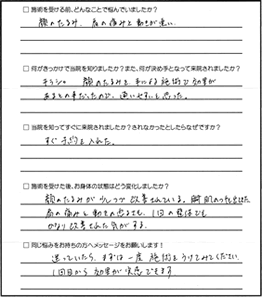 □ 施術を受ける前、どんなことで悩んでいましたか？
顔のたるみ、肩の痛みと動きが悪い
□ 何がきっかけで当院を知りましたか？また、何が決め手となって来院されましたか？
チラシ 顔のたるみを手による施術で効果が
あるとの事だったので、通いやすいと思った。
□ 当院を知ってすぐに来院されましたか？されなかったとしたらなぜですか？
すぐ予約を入れた。
□ 施術を受けた後、お身体の状態はどう変化しましたか？
顔のたるみが少しづつ改善されている。
肩の痛みも動きの悪さも、1回の施術でも
かなり改善された気がする。
□ 同じ悩みをお持ちの方へメッセージをお願いします！
迷っていたら、まずは一度施術をうけてみてください。
1回目から効果が実感できます